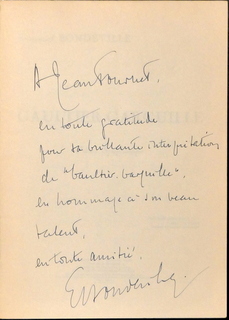 A Jean Fournet.
en toute gratitude
pour sa brillante interprétation
de "Gaultier-Garguille".
en hommage à son beau
talent,
en toute amitié.